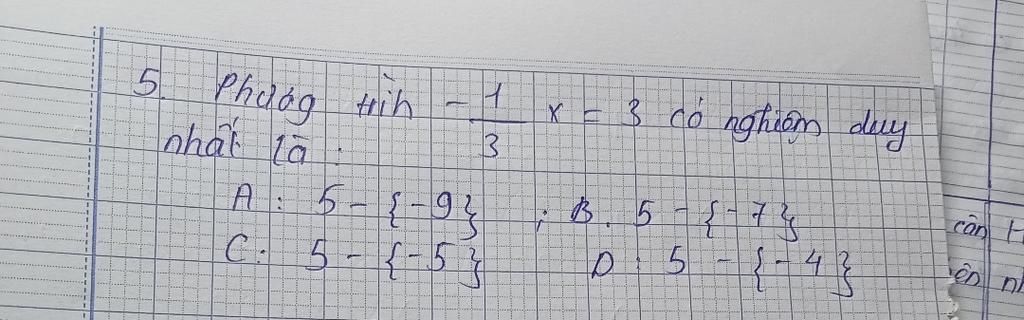 5. Phương trình - 1/3 x = 3 có nghiệm duy
nhất là :
A : 5 - {-9} ; B. 5 - {-7}
C. 5 - {-5} D : 5 - {-4}
cần H
ên nh